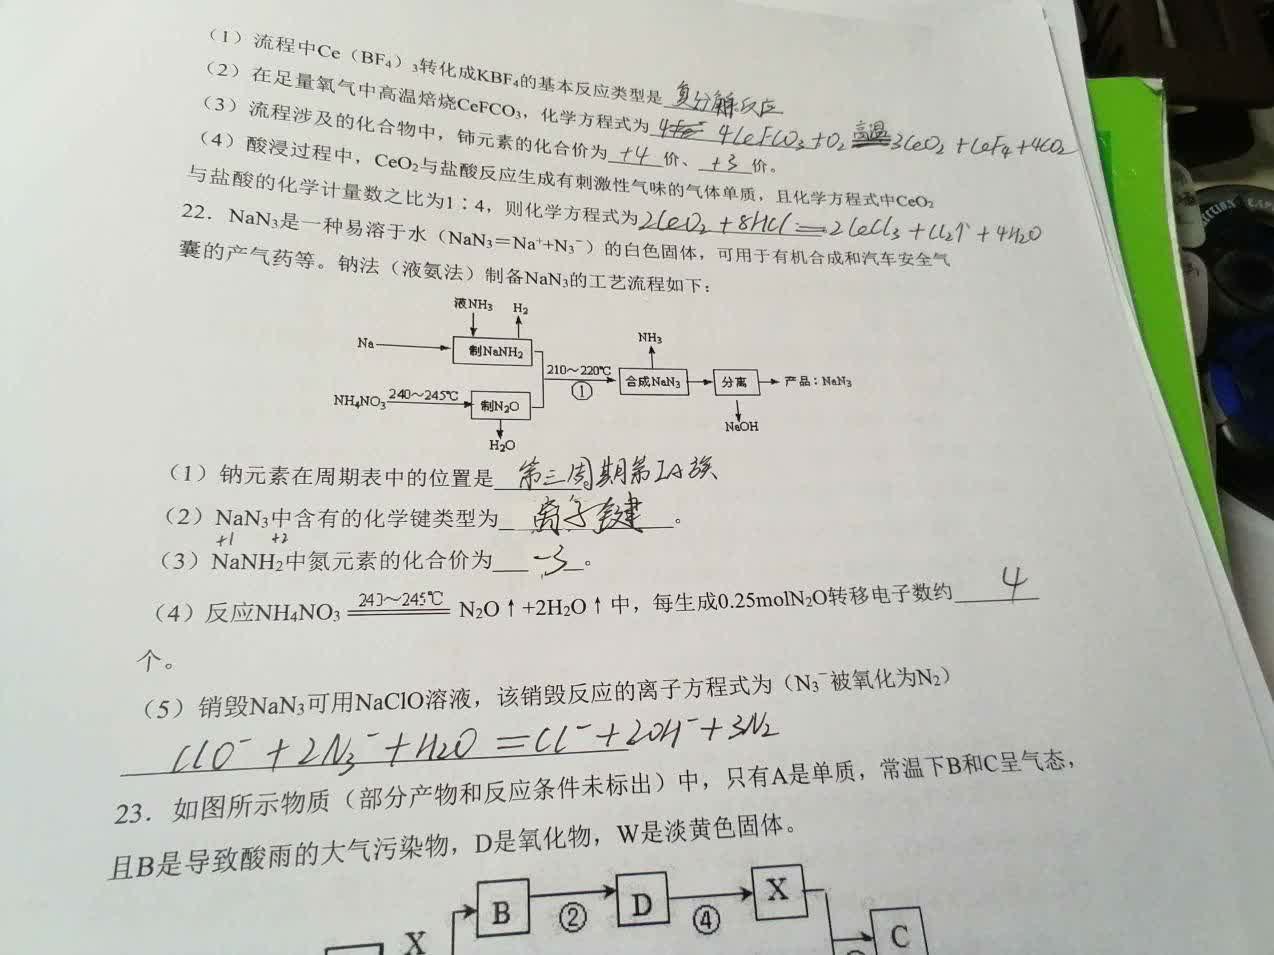 （1）流程中Ce（BF₄）₃转化成KBF₄的基本反应类型是 复分解反应
（2）在足量氧气中高温焙烧CeFCO₃，化学方程式为 4CeFCO₃+O₂ 高温 3CeO₂+CeF₄+4CO₂
（3）流程涉及的化合物中，铈元素的化合价为 +4 价、 +3 价。
（4）酸浸过程中，CeO₂与盐酸反应生成有刺激性气味的气体单质，且化学方程式中CeO₂
与盐酸的化学计量数之比为1：4，则化学方程式为 2CeO₂+8HCl=2CeCl₃+Cl₂↑+4H₂O
22．NaN₃是一种易溶于水（NaN₃=Na⁺+N₃⁻）的白色固体，可用于有机合成和汽车安全气
囊的产气药等。钠法（液氨法）制备NaN₃的工艺流程如下：
液NH₃ H₂
Na 制NaNH₂
NH₃
210～220℃
① 合成NaN₃ 分离 产品：NaN₃
NH₄NO₃ 240～245℃ 制N₂O
NaOH
H₂O
（1）钠元素在周期表中的位置是 第三周期第IA族
（2）NaN₃中含有的化学键类型为 离子键 。
+1 +2
（3）NaNH₂中氮元素的化合价为 -3 。
（4）反应NH₄NO₃ 240～245℃ N₂O↑+2H₂O↑中，每生成0.25molN₂O转移电子数约 4
个。
（5）销毁NaN₃可用NaClO溶液，该销毁反应的离子方程式为（N₃⁻被氧化为N₂）
ClO⁻+2N₃⁻+H₂O=Cl⁻+2OH⁻+3N₂
23．如图所示物质（部分产物和反应条件未标出）中，只有A是单质，常温下B和C呈气态，
且B是导致酸雨的大气污染物，D是氧化物，W是淡黄色固体。
B ② D ④ X
X C